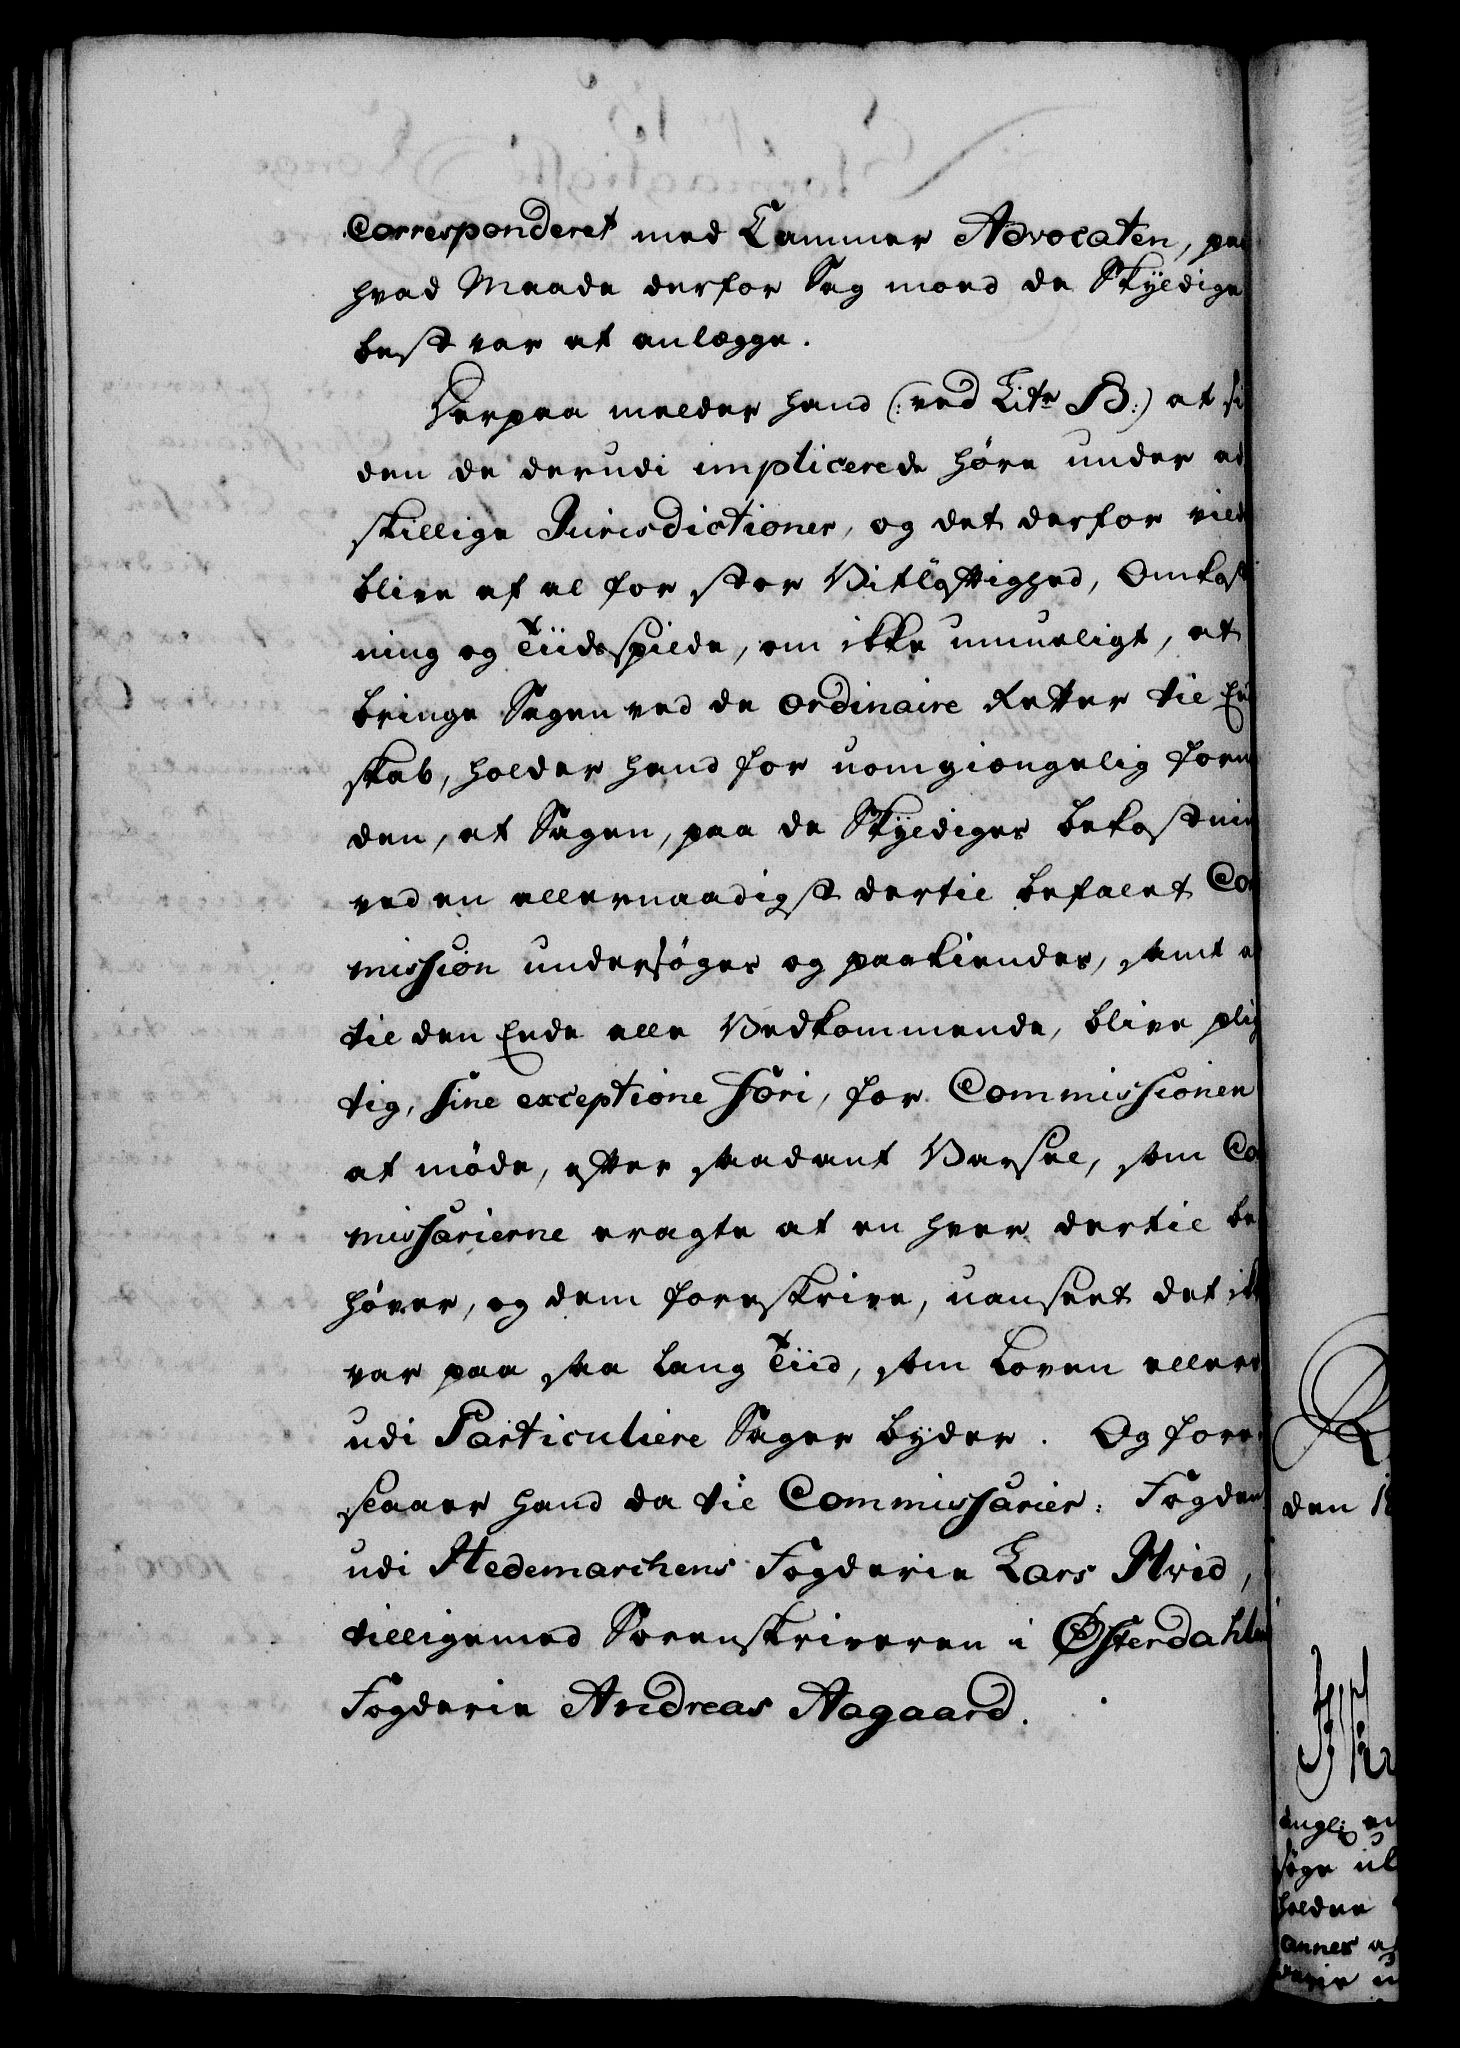 Corresponderet med Cammer Advocaten, paa
hvad Maade derfor Sag moed de Skyldige
best var at anlægge.
Herpaa melder hand (: ved Litr B:) at si
den de derudi implicerede høre under ad
skillige Jurisdictioner, og det derfor vilde
blive af al for stor Vitløftighed, Omkost
ning og Tiidsspilde, om ikke umueligt, at
bringe Sagen ved de ordinaire Retter til End
skab, holder hand for uomgiængelig forn
den, at Sagen, paa de Skyldiges bekostning
ved en allernaadigst dertil befalet Com
mission undersøges og paakiendes, samt at
til den Ende alle Vedkommende, blive plig
tig, sine exceptione fori, for Commissionen
at møde, efter saadant Varsel, som Com
missarierne eragte at en hver dertil be
høver, og dem foreskrive, uanseet det ikke
var paa saa lang Tiid, som Loven ellers
udi Particuliere Sager byder. Og fore
slaaer hand da til Commissarier: Fogden
udi Hedemarchens Fogderie Lars Hvid,
tilligemed Sorenskriveren i Østerdahlens
Fogderie Andreas Aagaard.
den 18